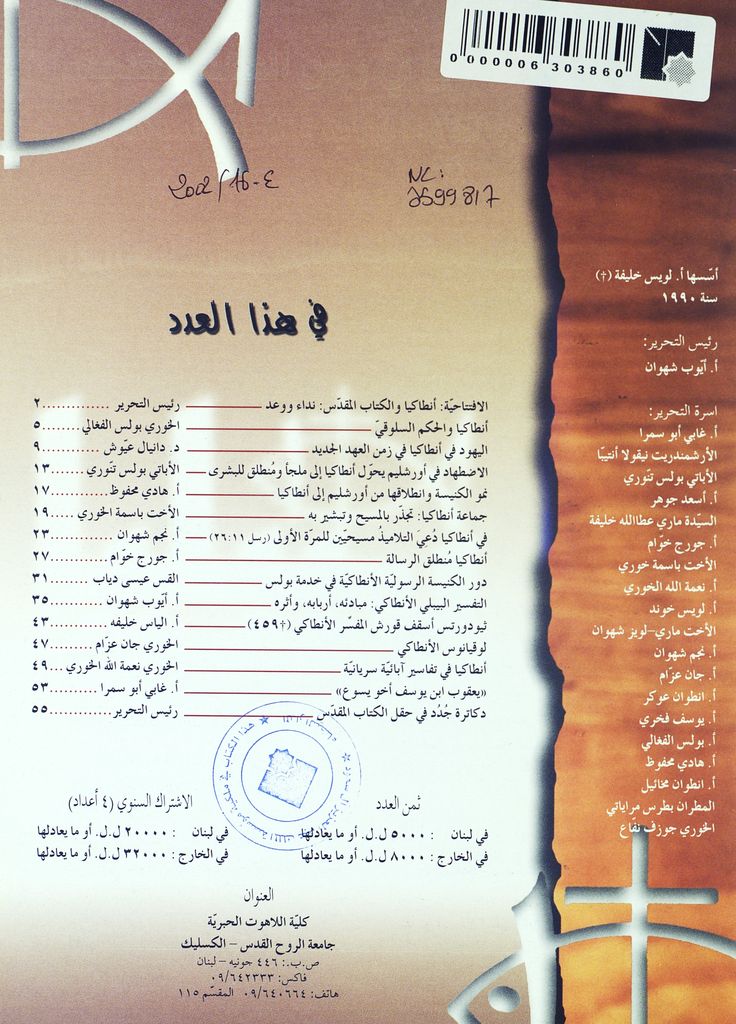 0 000006 303860
2002/16-E
NC:
2599817
أسّسها أ. لويس خليفة (†)
سنة ١٩٩٠
رئيس التحرير:
أ. أيّوب شهوان
اسرة التحرير:
أ. غابي أبو سمرا
الأرشمندريت نيقولا أنتيبّا
الأباتي بولس تنّوري
أ. أسعد جوهر
السيّدة ماري عطاالله خليفة
أ. جورج خوّام
الأخت باسمة خوري
أ. نعمة الله الخوري
أ. لويس خوند
الأخت ماري-لويز شهوان
أ. نجم شهوان
أ. جان عزّام
أ. انطوان عوكر
أ. يوسف فخري
أ. بولس الفغالي
أ. هادي محفوظ
أ. انطوان مخائيل
المطران بطرس مراياتي
الخوري جوزف نفّاع
في هذا العدد
الافتتاحيّة: أنطاكيا والكتاب المقدّس: نداء ووعد رئيس التحرير ............. ٢
أنطاكيا والحكم السلوقيّ الخوري بولس الفغالي ..... ٥
اليهود في أنطاكيا في زمن العهد الجديد د. دانيال عيّوش ......... ٩
الاضطهاد في أورشليم يحوّل أنطاكيا إلى ملجأ ومُنطلق للبشرى الأباتي بولس تنّوري ...... ١٣
نمو الكنيسة وانطلاقها من أورشليم إلى أنطاكيا أ. هادي محفوظ .......... ١٧
جماعة أنطاكيا: تجذّر بالمسيح وتبشير به الأخت باسمة الخوري ..... ١٩
في أنطاكيا دُعِيَ التلاميذُ مسيحيّين للمرّة الأولى (رسل ١١:٢٦) أ. نجم شهوان ............ ٢٣
أنطاكيا مُنطلق الرسالة أ. جورج خوّام ........... ٢٧
دور الكنيسة الرسوليّة الأنطاكيّة في خدمة بولس القس عيسى دياب ........ ٣١
التفسير البيبلي الأنطاكي: مبادئه، أربابه، وأثره أ. أيّوب شهوان .......... ٣٥
ثيودورتس أسقف قورش المفسّر الأنطاكي (†٤٥٩) أ. الياس خليفه .......... ٤٣
لوقيانوس الأنطاكي الخوري جان عزّام ........ ٤٧
أنطاكيا في تفاسير آبائيّة سريانيّة الخوري نعمة الله الخوري ... ٤٩
«يعقوب ابن يوسف أخو يسوع» أ. غابي أبو سمرا ......... ٥٣
دكاترة جُدُد في حقل الكتاب المقدّس رئيس التحرير ........... ٥٥
ثمن العدد
في لبنان : ٥٠٠٠ ل.ل. أو ما يعادلها
في الخارج : ٨٠٠٠ ل.ل. أو ما يعادلها
الاشتراك السنوي (٤ أعداد)
في لبنان : ٢٠٠٠٠ ل.ل. أو ما يعادلها
في الخارج : ٣٢٠٠٠ ل.ل. أو ما يعادلها
العنوان
كليّة اللاهوت الحبريّة
جامعة الروح القدس – الكسليك
ص.ب.: ٤٤٦ جونيه – لبنان
فاكس: ٠٩/٦٤٢٣٣٣
هاتف: ٠٩/٦٤٠٦٦٤ المقسّم ١١٥